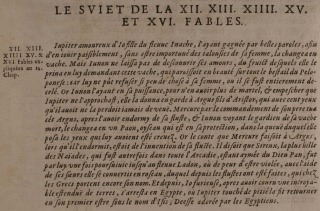 LE SVIET DE LA XII. XIII. XIIII. XV.
ET XVI. FABLES.
XII. XIII.
XIIII. XV. &
XVI. Fables ex-
pliquées au 11.
Chap.
Iupiter amoureux d'Io fille du fleuue Inache, l'ayant gagnée par belles paroles, afin
d'en iouir paisiblement, sans estre importuné des ialousies de sa femme, la changea en
vache. Mais Iunon ne laissa pas de descouurir ses amours, du fruict desquels elle le
priua en luy demandant ceste vache, qui paroissoit en beauté sur tout le bestail du Pelo-
ponese: car luy ne put refuser si peu de chose à sa femme, ou il se fust entierement dece-
lé. Or Iunon l'ayant en sa puissance, pour n'auoir plus de martel, & empescher que
Iupiter ne l'approchast, elle la donna en garde à Argus fils d'Aristor, qui auec cent yeux
qu'il auoit ne la perdoit iamais de veüe. Mercure par commandement de Iupiter tua
cét Argus, apres l'auoir endormy de sa fluste, & Iunon voyant le gardien de sa vache
mort, le changea en vn Paon, oyseau qui est en sa protection, dans la queuë duquel elle
posa les yeux qu'il auoit euz Or le conte que Mercure faisoit à Argus,
lors qu'il l'endormit, estoit de l'inuention de sa fluste. Il disoit que Sirinx, la plus belle
des Naiades, qui fust autresfois dans toute l'Arcadie, estant aymée du Dieu Pan, fut
par luy vne fois poursuiuie iusqu'au fleuue Ladon, où de peur d'estre violée, auec l'aide
de ses sœurs elle se conuertit en roseau, duquel depuis les flustes ont esté faites, qui chez
les Grecs portent encore son nom. Et depuis, Io furieuse, apres auoir couru vne incroya-
ble estenduë de terres, s'arresta en Egypte, où Iupiter touché de pitié la fit retourner
en son premier estre sous le nom d'Isis, Deesse adorée par les Egyptiens.